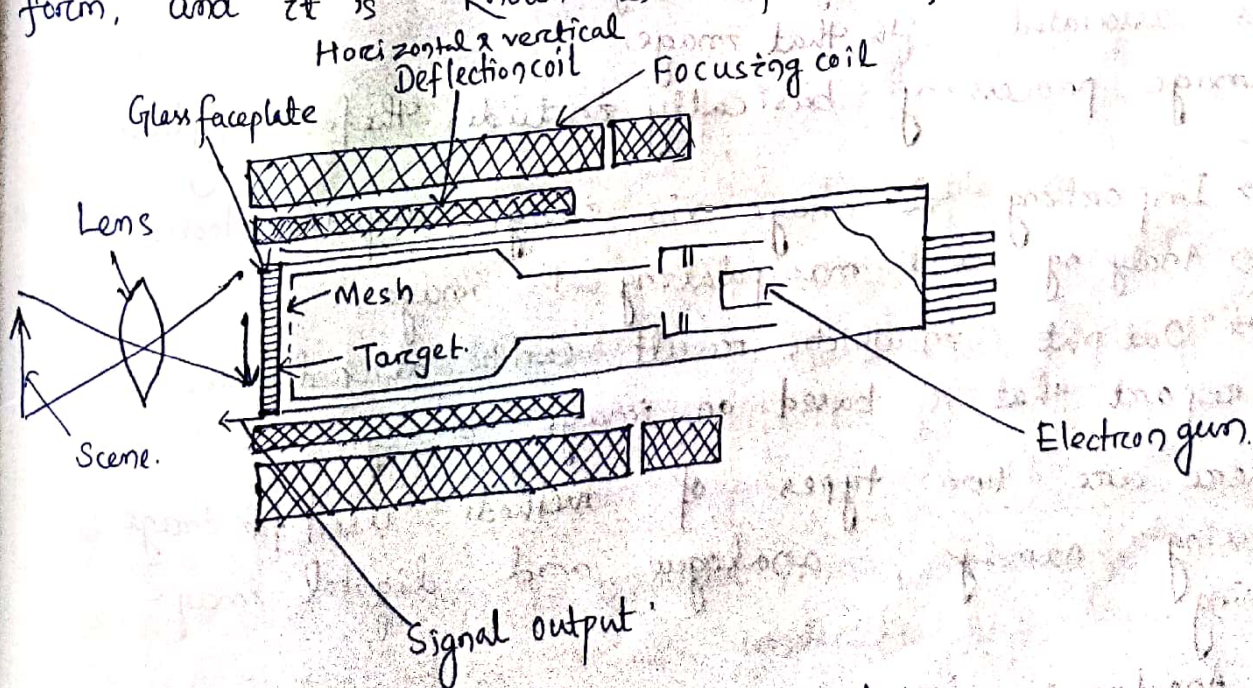 form, and it is
Horizontal & vertical
Deflection coil
Focusing coil
Glass faceplate
Lens
Mesh
Target.
Scene.
Electron gun.
Signal output